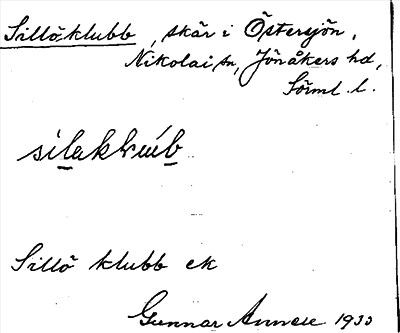 Sillöklubb, skär i Östersjön,
Nikolai sn, Jönåkers hd,
Sörml. l.
Sillö klubb ek
Gunnar 1933